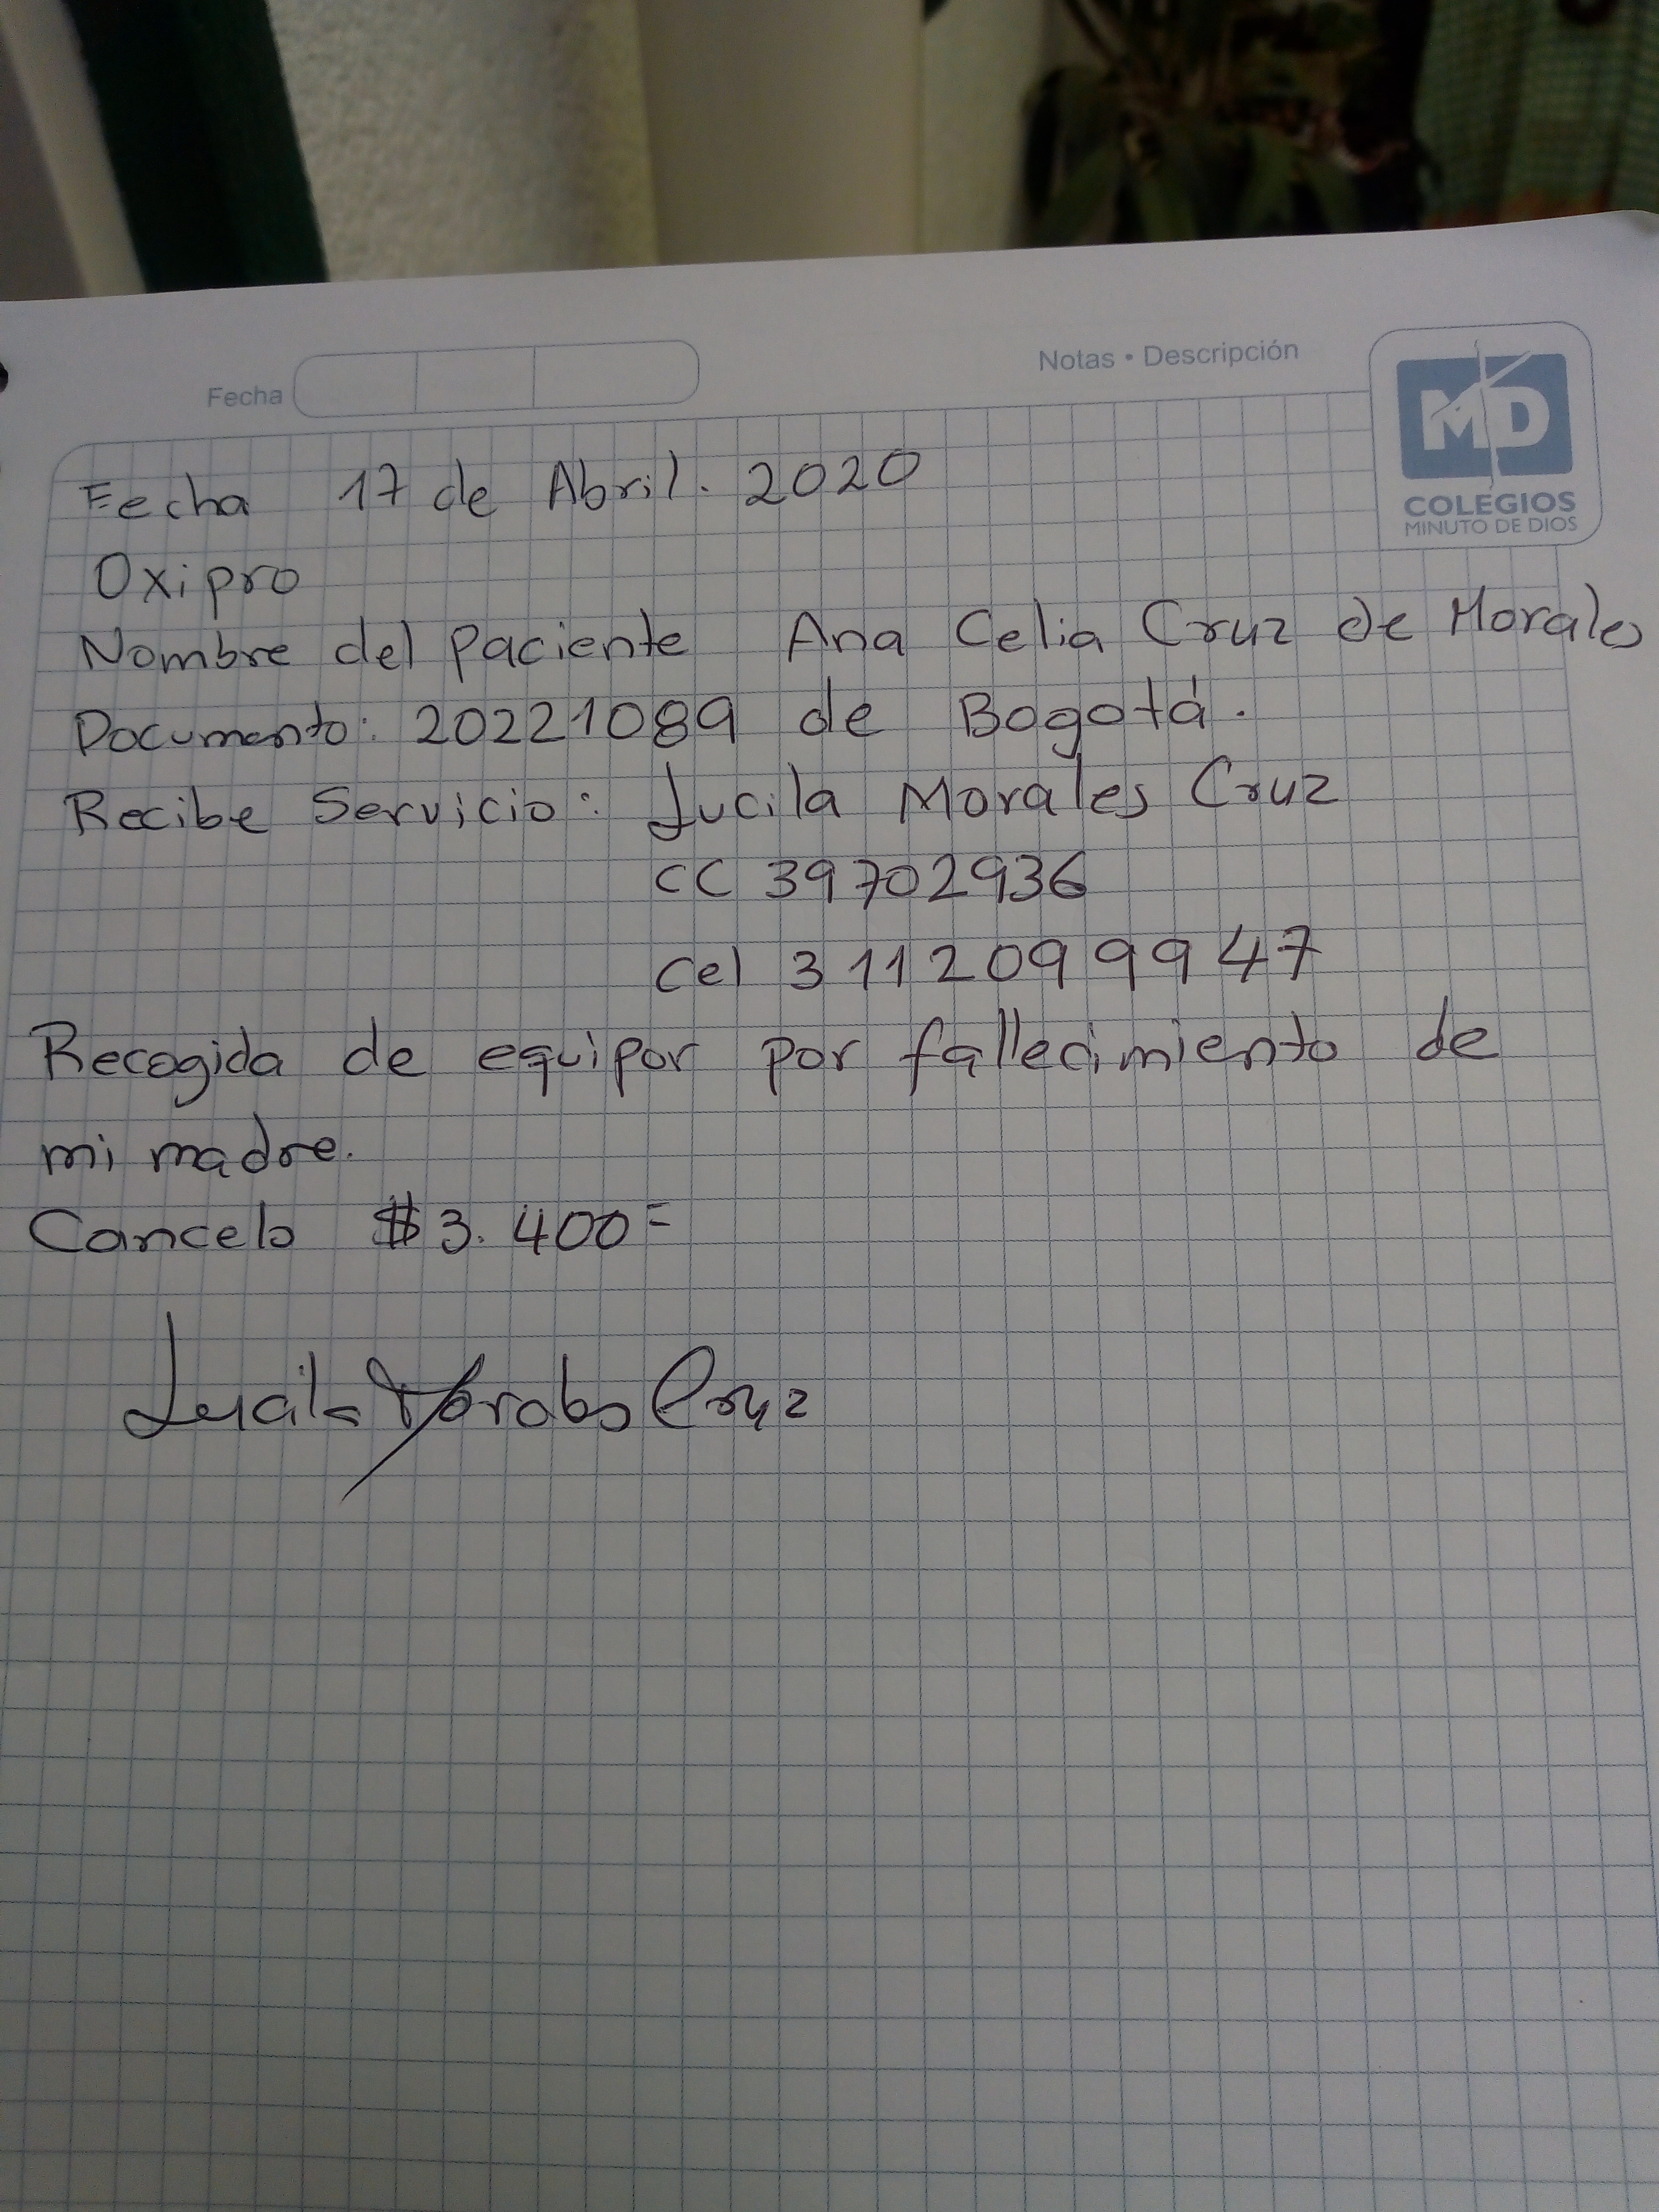 Fecha
Notas • Descripción
MD
COLEGIOS
MINUTO DE DIOS
Fecha 17 de Abril. 2020
Oxipro
Nombre del paciente Ana Celia Cruz de Morales
Documento: 20221089 de Bogotá.
Recibe Servicio: Lucila Morales Cruz
CC 39702936
Cel 3112099947
Recogida de equipor por fallecimiento de
mi madre.
Cancelo $3.400=
Lucila Morales Cruz